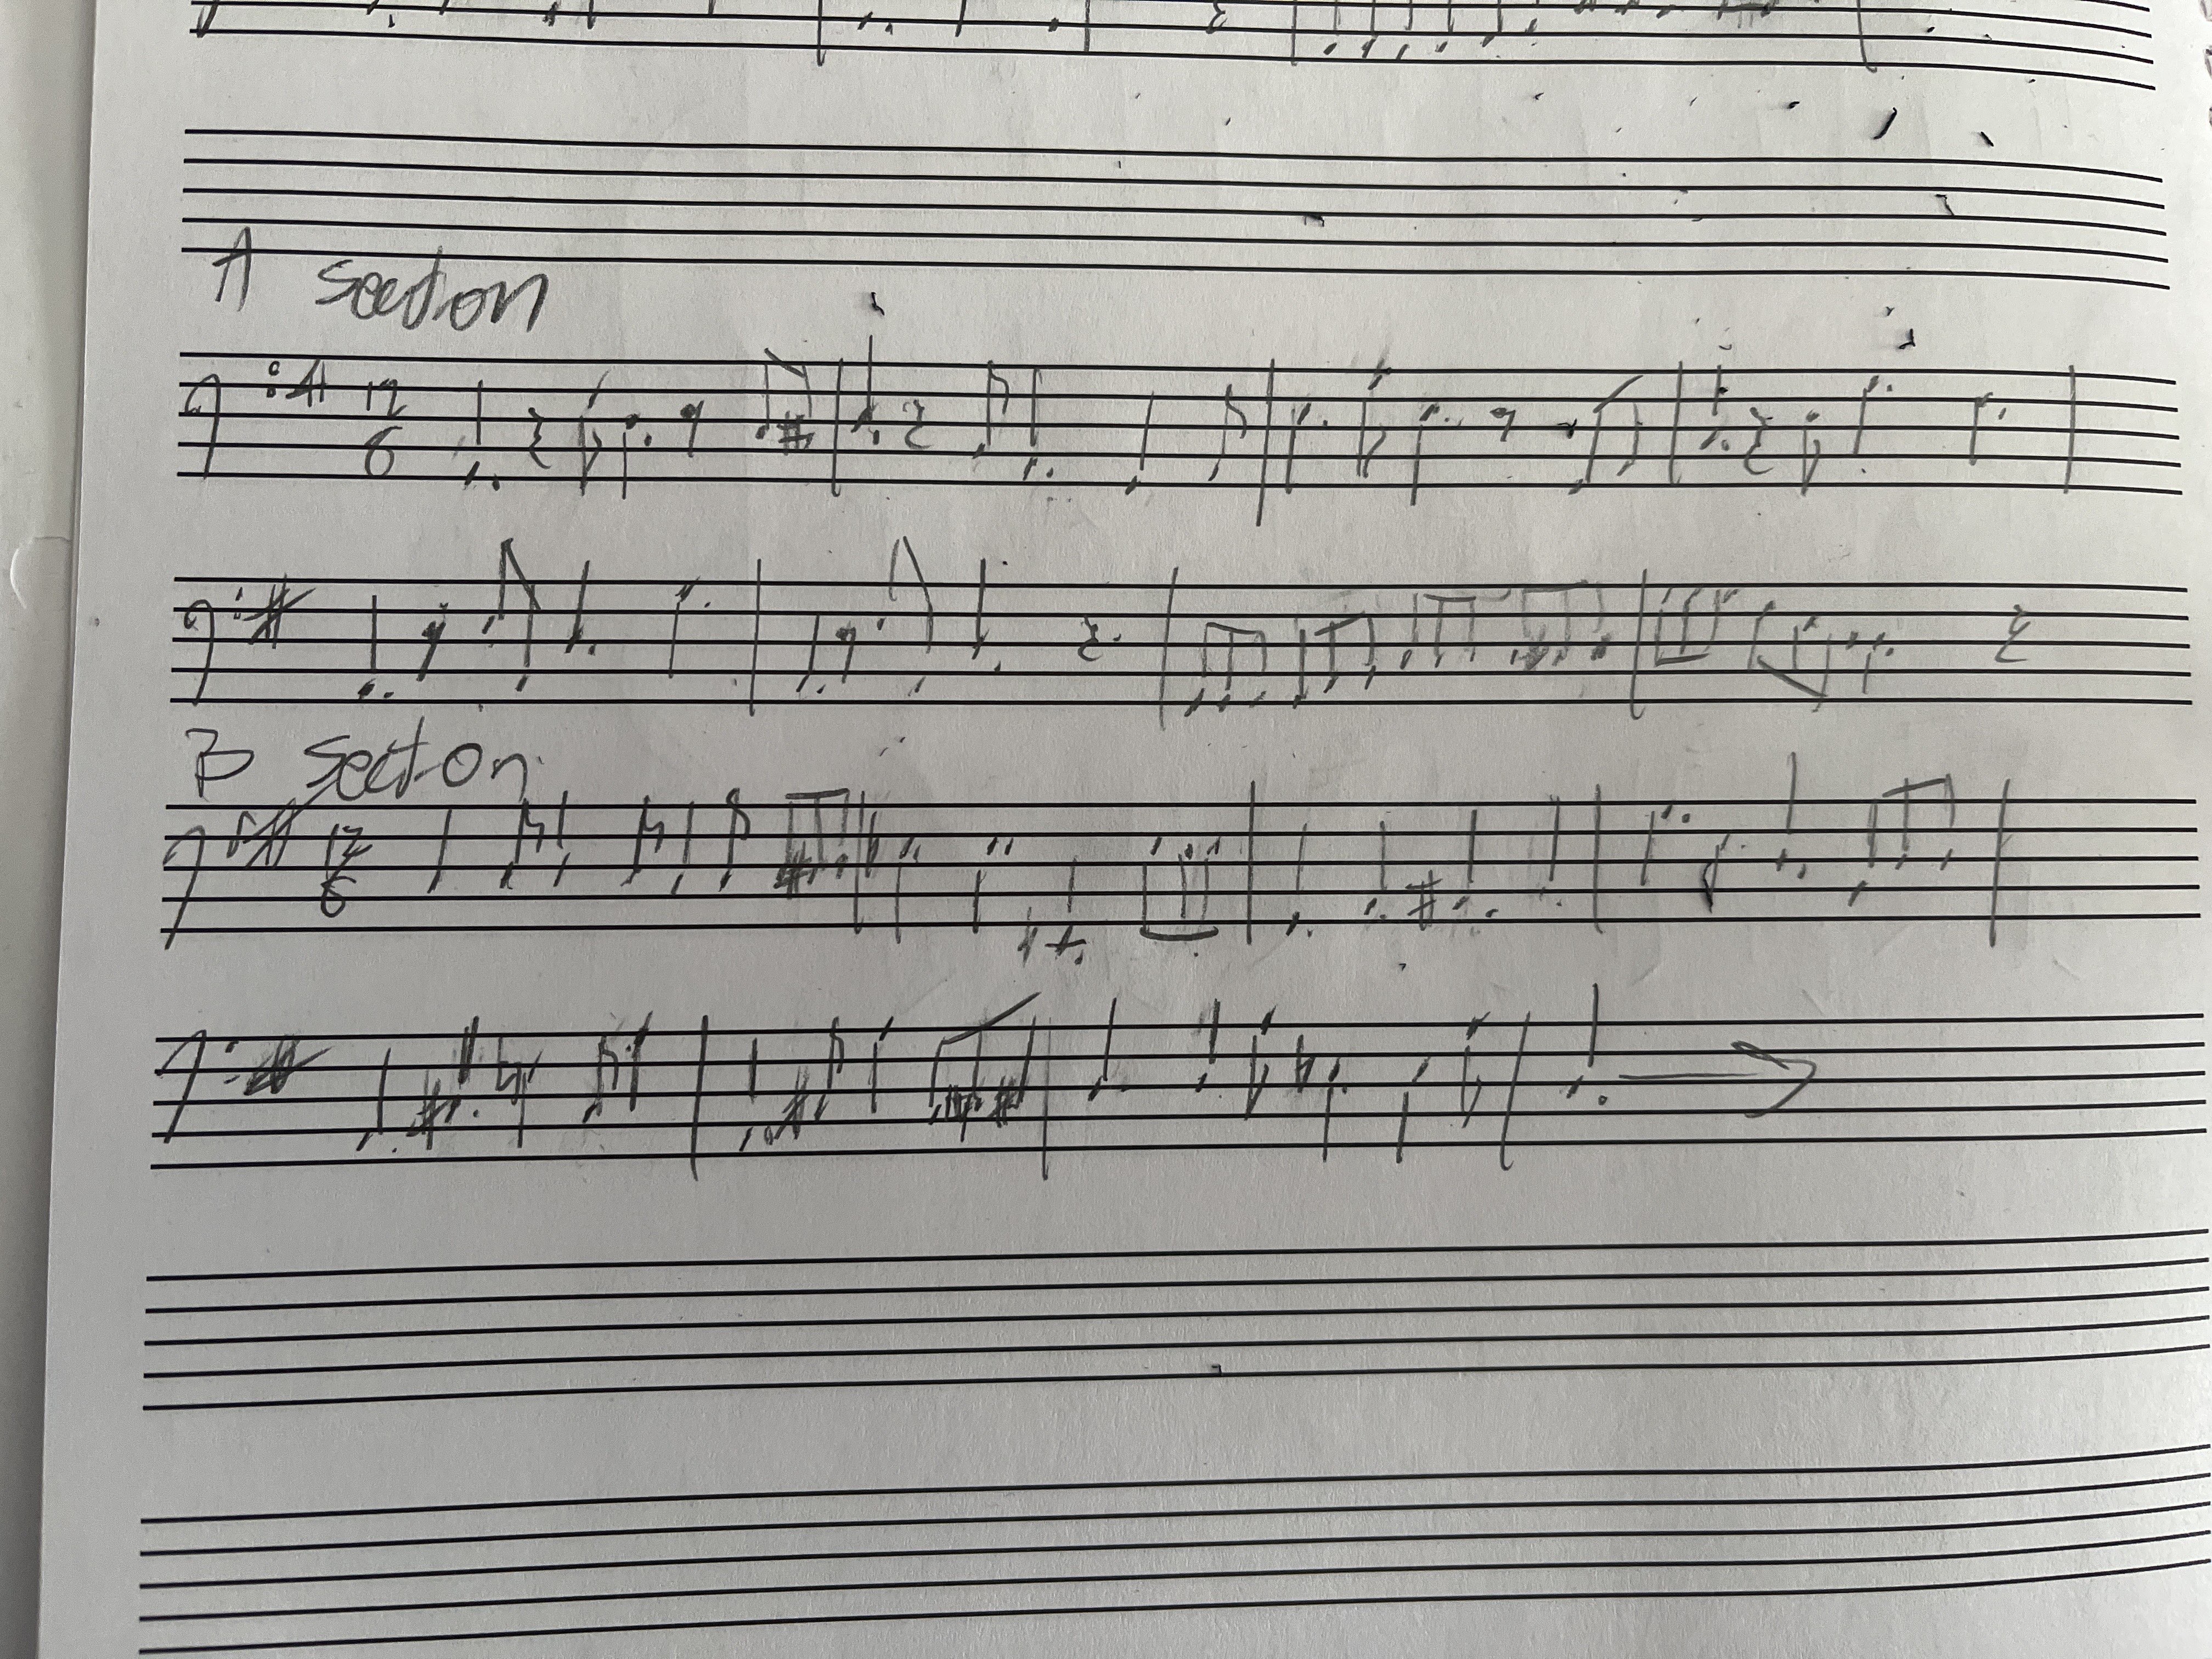 A section
12
8
B section
12
8